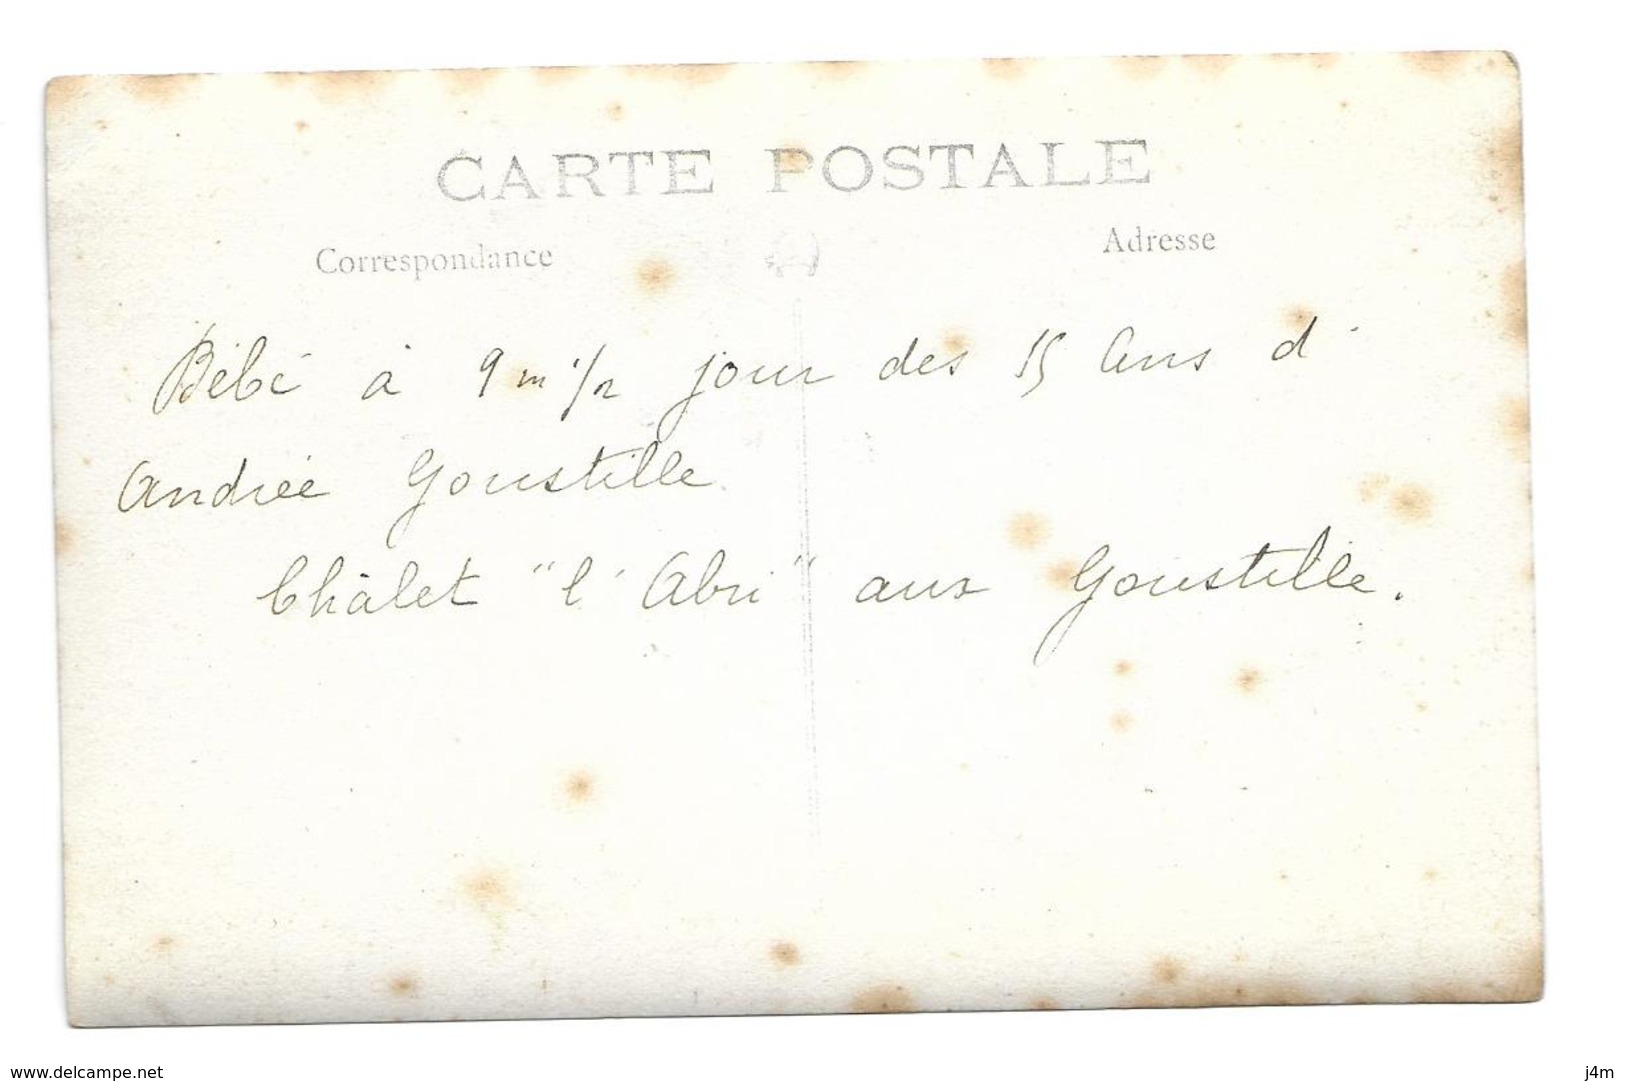 CARTE POSTALE
Correspondance
Adresse
Bébé à 9 m 1/2 jour des 15 Ans d'
Andrée Goustille
Châlet "l'Abri" aux Goustille.
www.delcampe.net
j4m